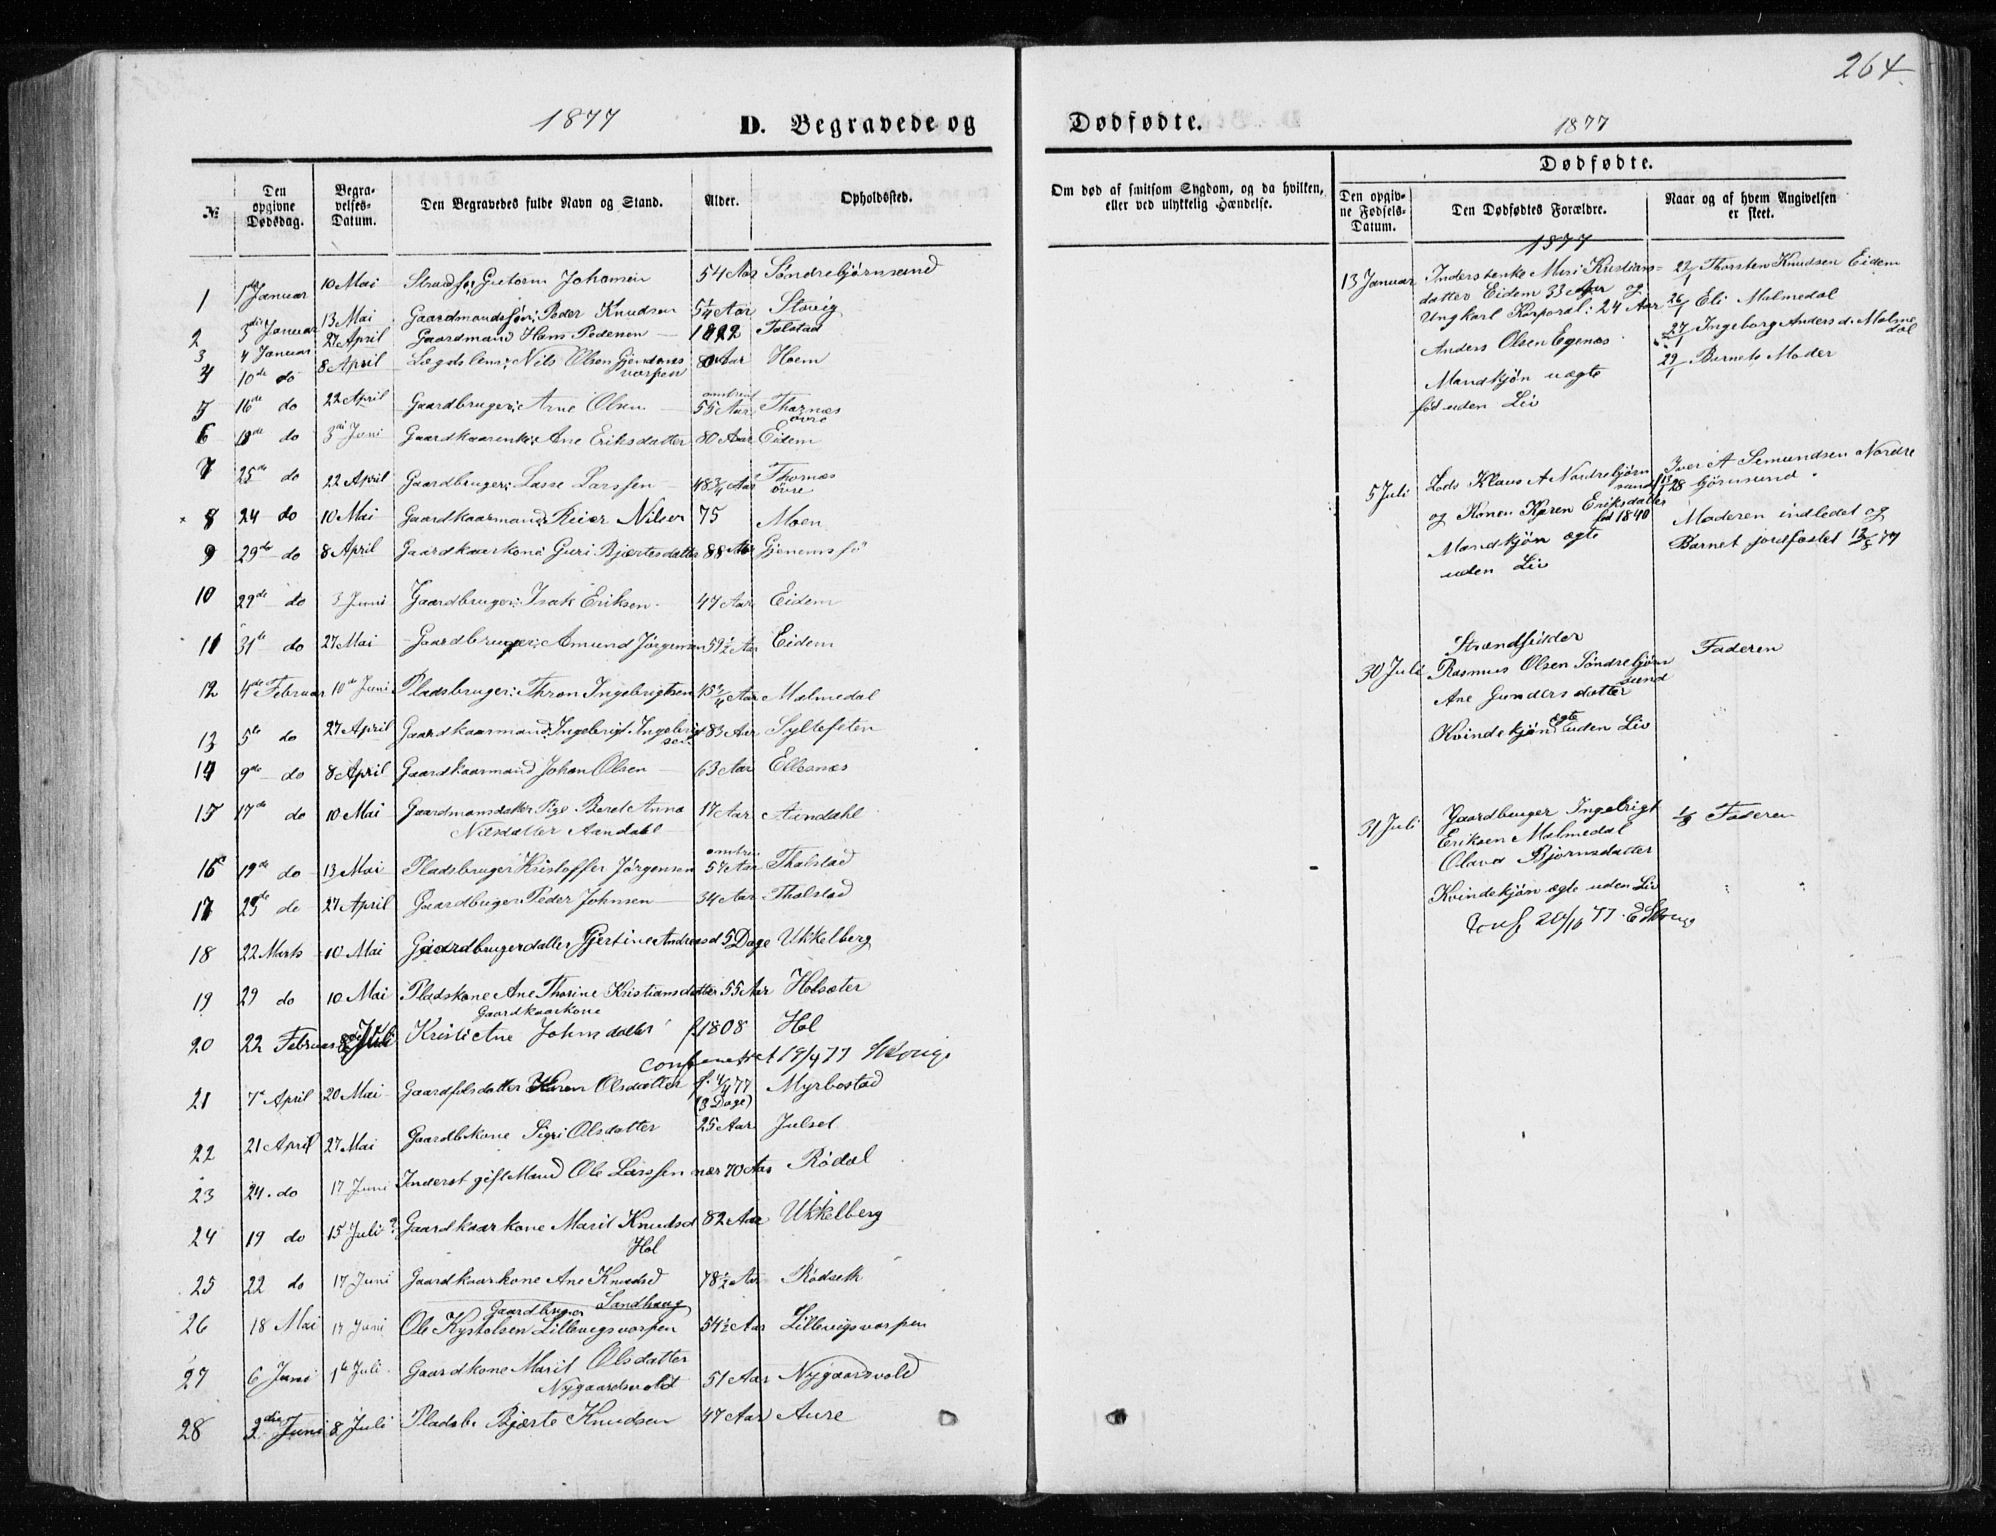 264
1877 D. Begravede og Dødfødte. 1877
Dødfødte.
№
Den opgivne Dødsdag.
Begravelses-Datum.
Den Begravedes fulde Navn og Stand.
Alder.
Opholdssted.
Om død af smitsom Sygdom, og da hvilken, eller ved ulykkelig Hændelse.
Den opgivne Fødsels-Datum.
Den Dødfødtes Forældre.
Naar og af hvem Angivelsen er skeet.
1 1de Januar 10 Mai Gutorm Johansen 54 Aar Søndrebjørnsund
2 3die Januar 13 Mai Gaardmandssøn: Peder Knudsen 5 1/4 Aar Stavig
3 4 Januar 27 April Gaardmand Hans Pedersen Tolstad
4 10de do 8 April Lægdslem: Nils Olsen Gjendem's varpen 80 Aar Hoem
5 16de do 22 April Gaardbruger: Arne Olsen omtrent 55 Aar Thornæs øvre
6 18de do 3di Juni Gaardkaarenke: Ane Eriksdatter 80 Aar Eidem
7 25de do 22 April Gaardbruger: Lasse Larssen 48 3/4 Aar Thornæs øvre
8 24 do 10 Mai Gaardkaarmand: Reier Nilsen 75 Moen
9 29de do 8 April Gaardkaarkone: Guri Bjærtesdatter 88 Aar Gjenemsø
10 29de do 3 Juni Gaardbruger: Isak Eriksen 47 Aar Eidem
11 31te do 27 Mai Gaardbruger: Amund Jørgensen 59 1/2 Aar Eidem
12 4de Februar 10de Juni Pladsbruger: Thron Ingebrigtsen 45 Aar Malmedal
13 5te do 27 April Gaardkaarmand: Ingebrigt Ingebrigtsen 83 Aar Syltefeten
14 9de do 8 April Gaardkaarmand Johan Olsen 63 Aar Ellesnæs
15 17de do 10 Mai Gaardmansdatter Pige Beret Anna 17 Aar Aandahl
Nilsdatter Aandahl
16 19de do 13 Mai Pladsbruger Kristoffer Jørgensen omtrent 57 Aar Thalstad
17 23de do 27 April Gaardbruger: Peder Johnsen 34 Aar Thalstad
18 22 Marts 10 Mai Gaardbrugerdatter Gjertine Andreasd 5 Dage Ukkelberg
19 29 do 10 Mai Pladskone Ane Thorine Kristiansdatter 55 Aar Holsæter
20 22 Februar Gaardkaarkone Kristi Ane Johnsdatter f 1808 Hol
19/4 77
21 7de April 20 Mai Olsdatter f. 4/4 77 (3 Dage) Myrbostad
22 21 April 27 Mai Gaardbkone Sigri Olsdatter 25 Aar Julset
23 24. do 17 Juni Inderst gift Mand Ole Larssen nær 70 Aar Rødal
24 19 do 15 Juli? Gaardkaarkone Marit Knudsd Hol 82 Aar Ukkelberg
25 22 do 17 Juni Gaardkaarkone Ane Knudsd Sandhaug 78 1/2 Aar Rødseth
26 18 Mai 17 Juni Gaardbruger Ole Kystolsen Lillevigsvarpen 54 1/2 Aar Lillevigsvarpen
27 6 Juni 1ste Juli Gaardkone Marit Olsdatter Nygaardsvold 51 Aar Nygaardsvold
28 2den Juni 8 Juli Pladsb. Bjærte Knudsen 47 Aar Aure
1877
13 Januar Inderstenke Mari Kristians-
datter Eidem 33 Aar og
Ungkarl Korporal: 24 Aar
Anders Olsen Egenæs
Mandkjøn uægte
fød uden Liv
22/1 Thorsten Knudsen Eidem
26/1 Eli Malmedal
27/1 Ingeborg Anders d. Malmedal
29/1 Barnets Moder
5 Juli Lods Klaus A Nordrebjørnsund
og Konen Karen Eriksdatter
fød 1840
Mandkjøn ægte
uden Liv
Iver A Semundsen Nordre
bjørnsund.
Moderen indledet og
Barnet jordfæstet 12/8 77
30 Juli Strandsidder
Rasmus Olsen Søndrebjørnsund
Ane Gundersdatter
Kvindekjøn ægte uden Liv
Faderen
31 Juli Gaardbruger Ingebrigt
Eriksen Malmedal
Olava Bjørnsdatter
Kvindekjøn ægte uden Liv
1/8 Faderen
20/10 77